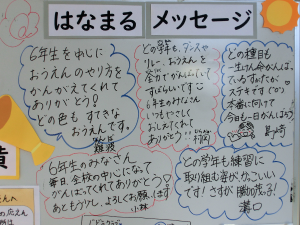 はなまる メッセージ
6年生を中心に
おうえんのやり方を
かんがえてくれて
ありがとう!
どの色も すてきな
おうえんです。
どの学年も、ダンスや
リレー、おうえんを
全力でがんばっていて
すばらしいです
6年生のみなさん
いつもやさしく
おしえてくれて
ありがとう
どの種目も
一生けん命がんばっ
ているすがたが
ステキです(^o^)
本番に向けて
今日も一日がんばろう
6年生のみなさん
毎日、全校の中心になって
がんばってくれてありがとう
あともう少し、よろしくお願いします
小林
どの学年も練習に
取り組む姿がかっこいい
です!さすが勝加茂っ子!
溝口